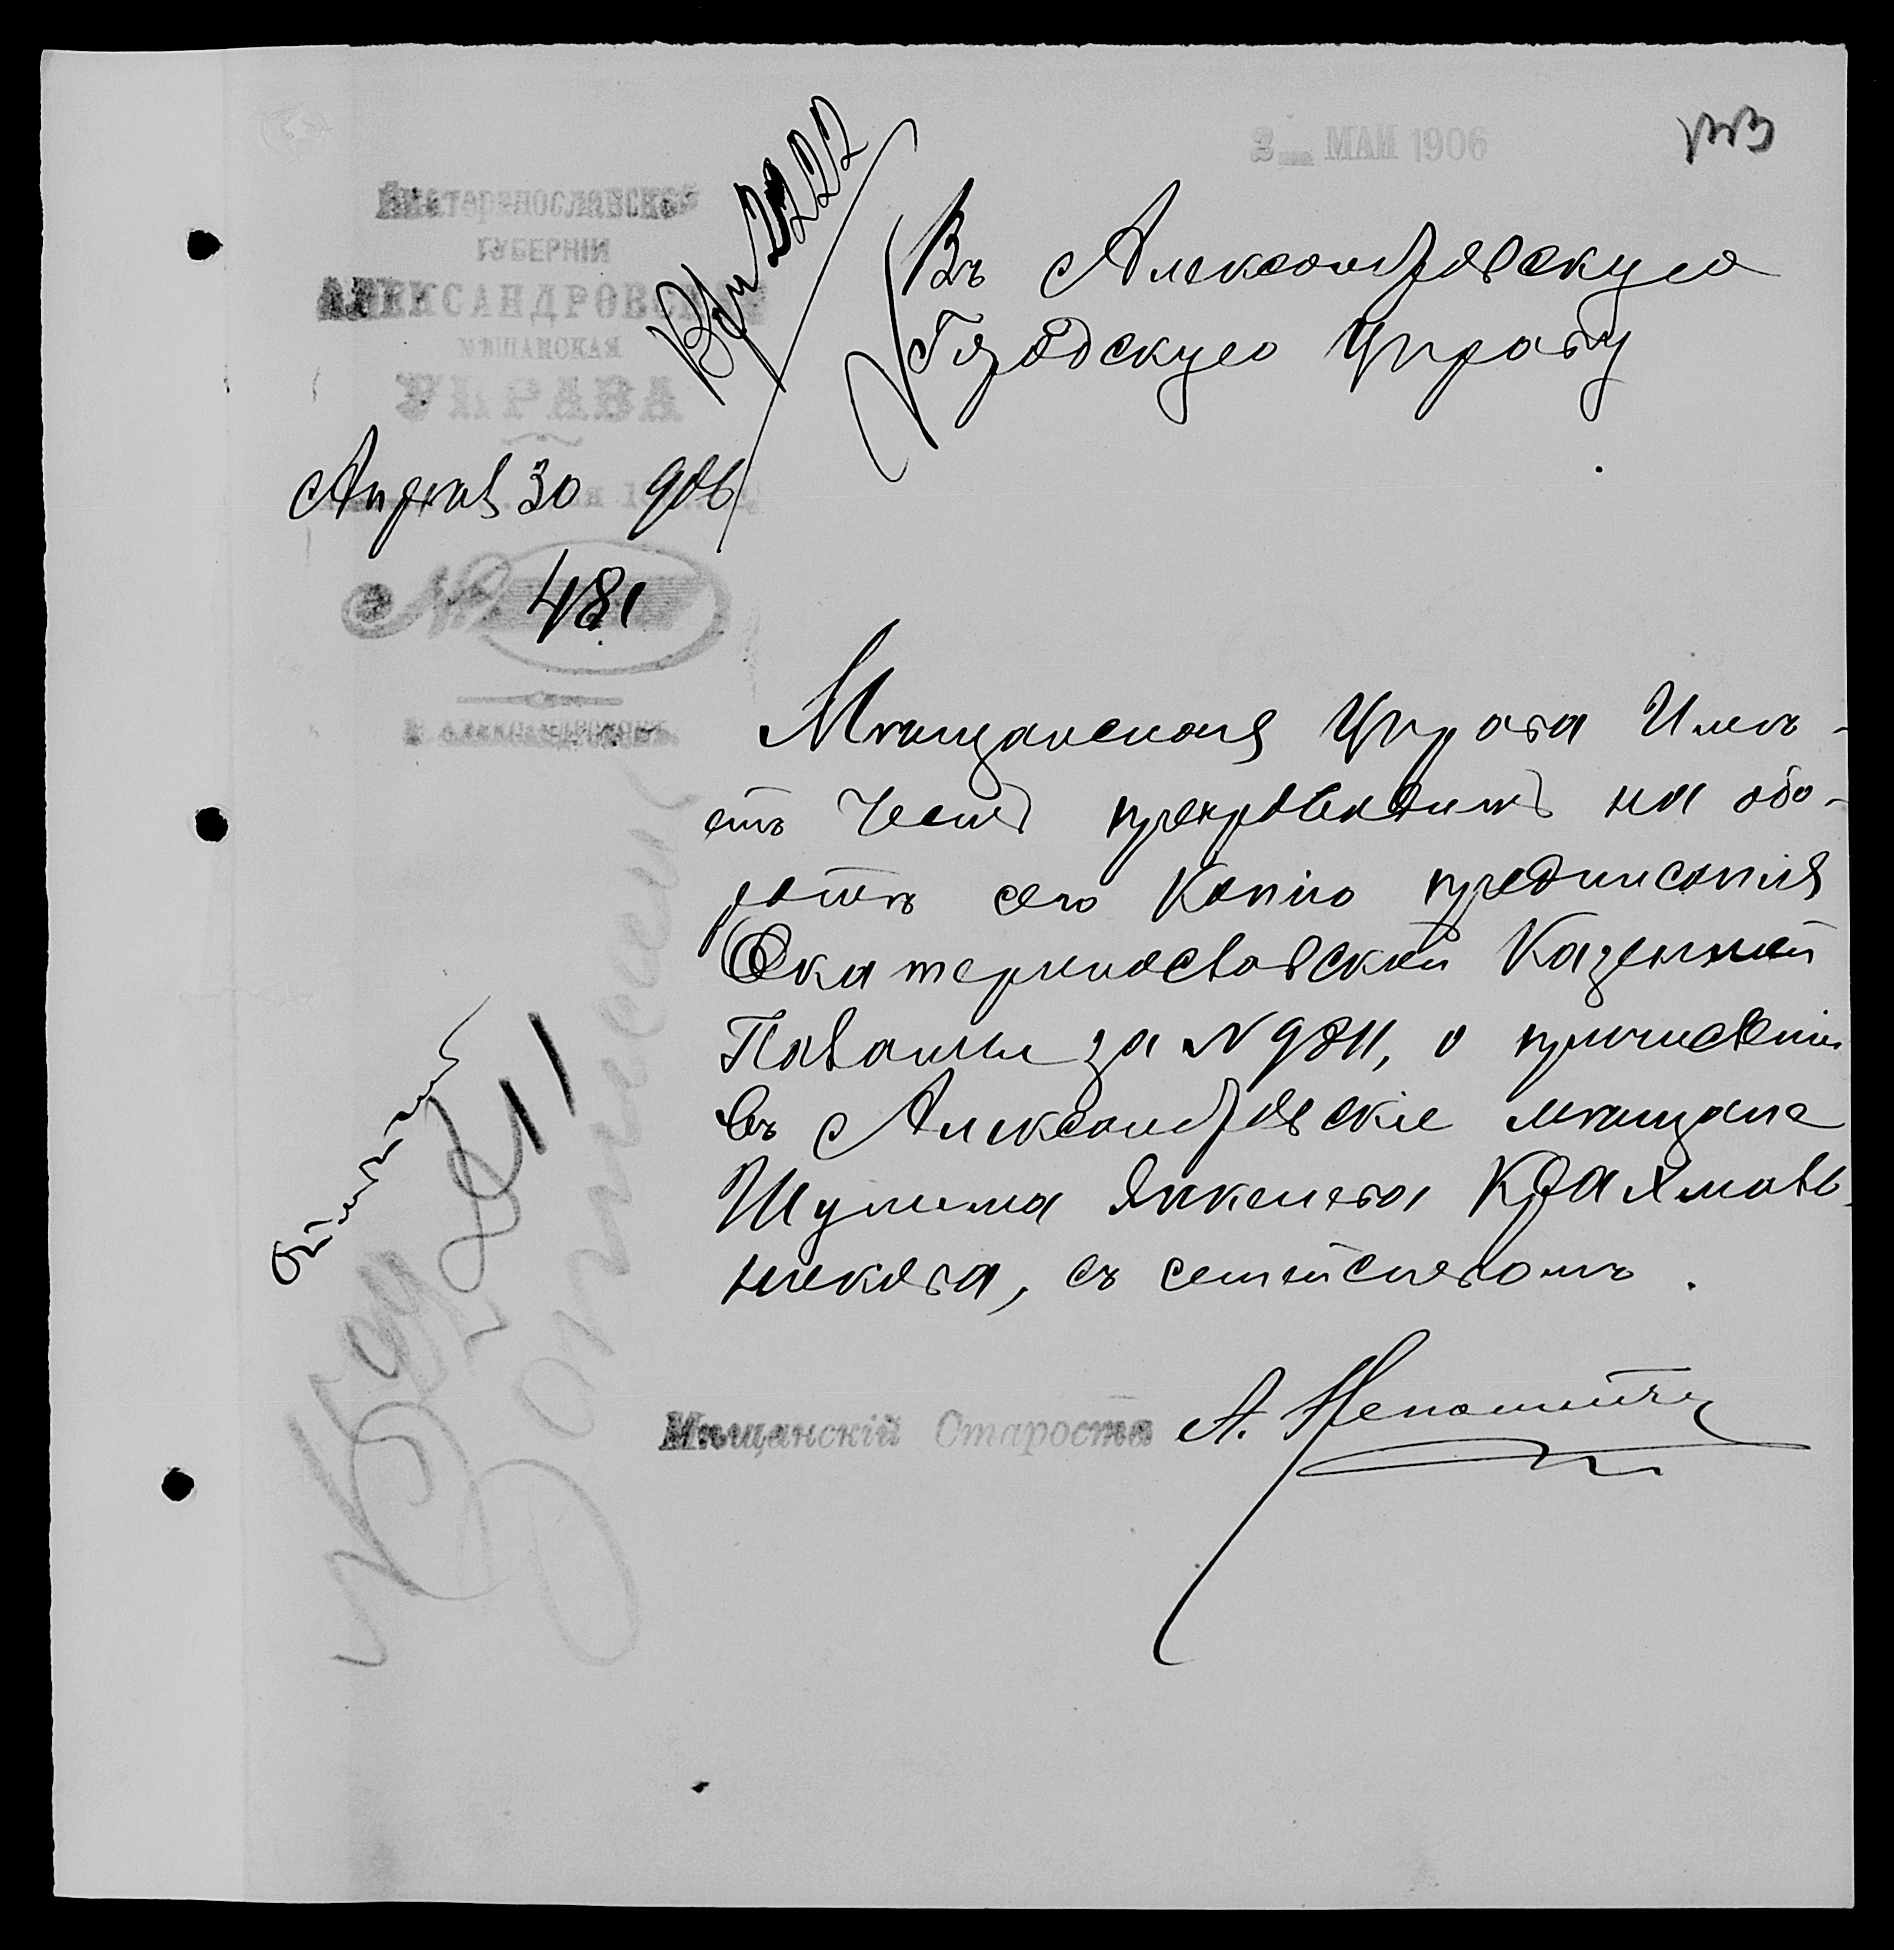 2 МАЯ 1906
Екатеринославской
ГУБЕРНІИ
АЛЕКСАНДРОВСКАЯ
МѢЩАНСКАЯ
УПРАВА
Апреля 30 906
№ 481
Г. АЛЕКСАНДРОВСКЪ
2222
Въ Александровскую
Городскую Управу
Мѣщанская Управа Имѣ-
етъ Честь препроводить на обо-
ротѣ сего Копію предписанія
Екатеринославской Казенной
Палаты за № 9811, о причисленіи
въ Александровскіе мѣщане
Шулима Янкелева Крахмаль-
никова, съ семействомъ.
Мѣщанскій Староста А.